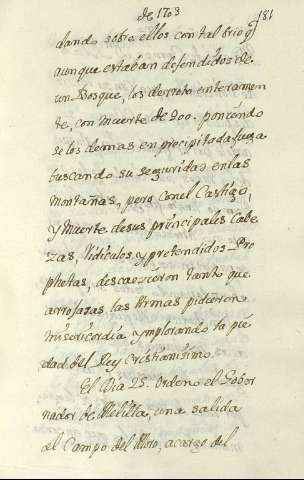 de 1703
181
dando sobre ellos con tal brio q
aunque estaban defendidos de
un Bosque, los derroto enteramen
te, con muerte de 900. poniendo
se los demas en precipitada fuga
buscando su seguridad en las
montañas, pero con el Castigo,
y Muerte de sus principales Cabe
zas, Ridiculos y pretendidos Pro
phetas, descaezieron tanto que
arrojadas las Armas pidieron
misericordia ymplorando la pie
dad del Rey Cristianisimo.
El Dia 25. Ordeno el Gober
nador de Melilla, una salida
al Campo del Moro, a cargo del